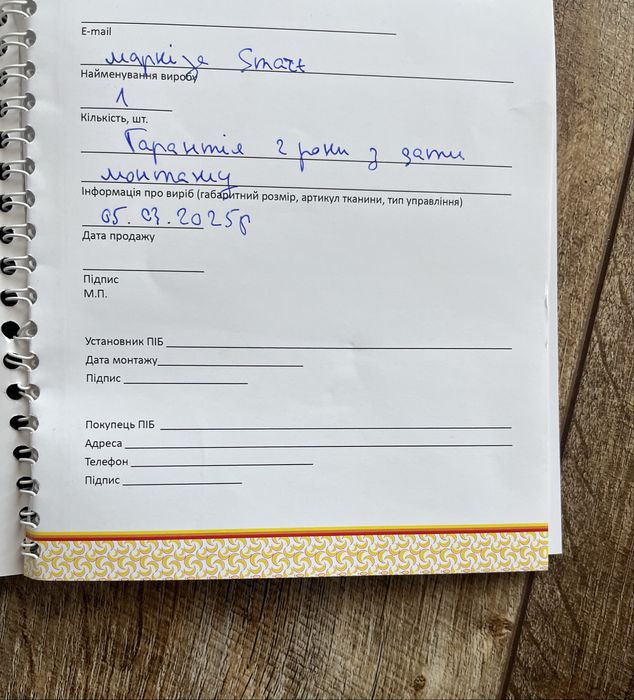 E-mail
маркіза Smart
Найменування виробу
1
Кількість, шт.
Гарантія 2 роки з дати
монтажу
Інформація про виріб (габаритний розмір, артикул тканини, тип управління)
05.03.2025р
Дата продажу
Підпис
М.П.
Установник ПІБ
Дата монтажу
Підпис
Покупець ПІБ
Адреса
Телефон
Підпис